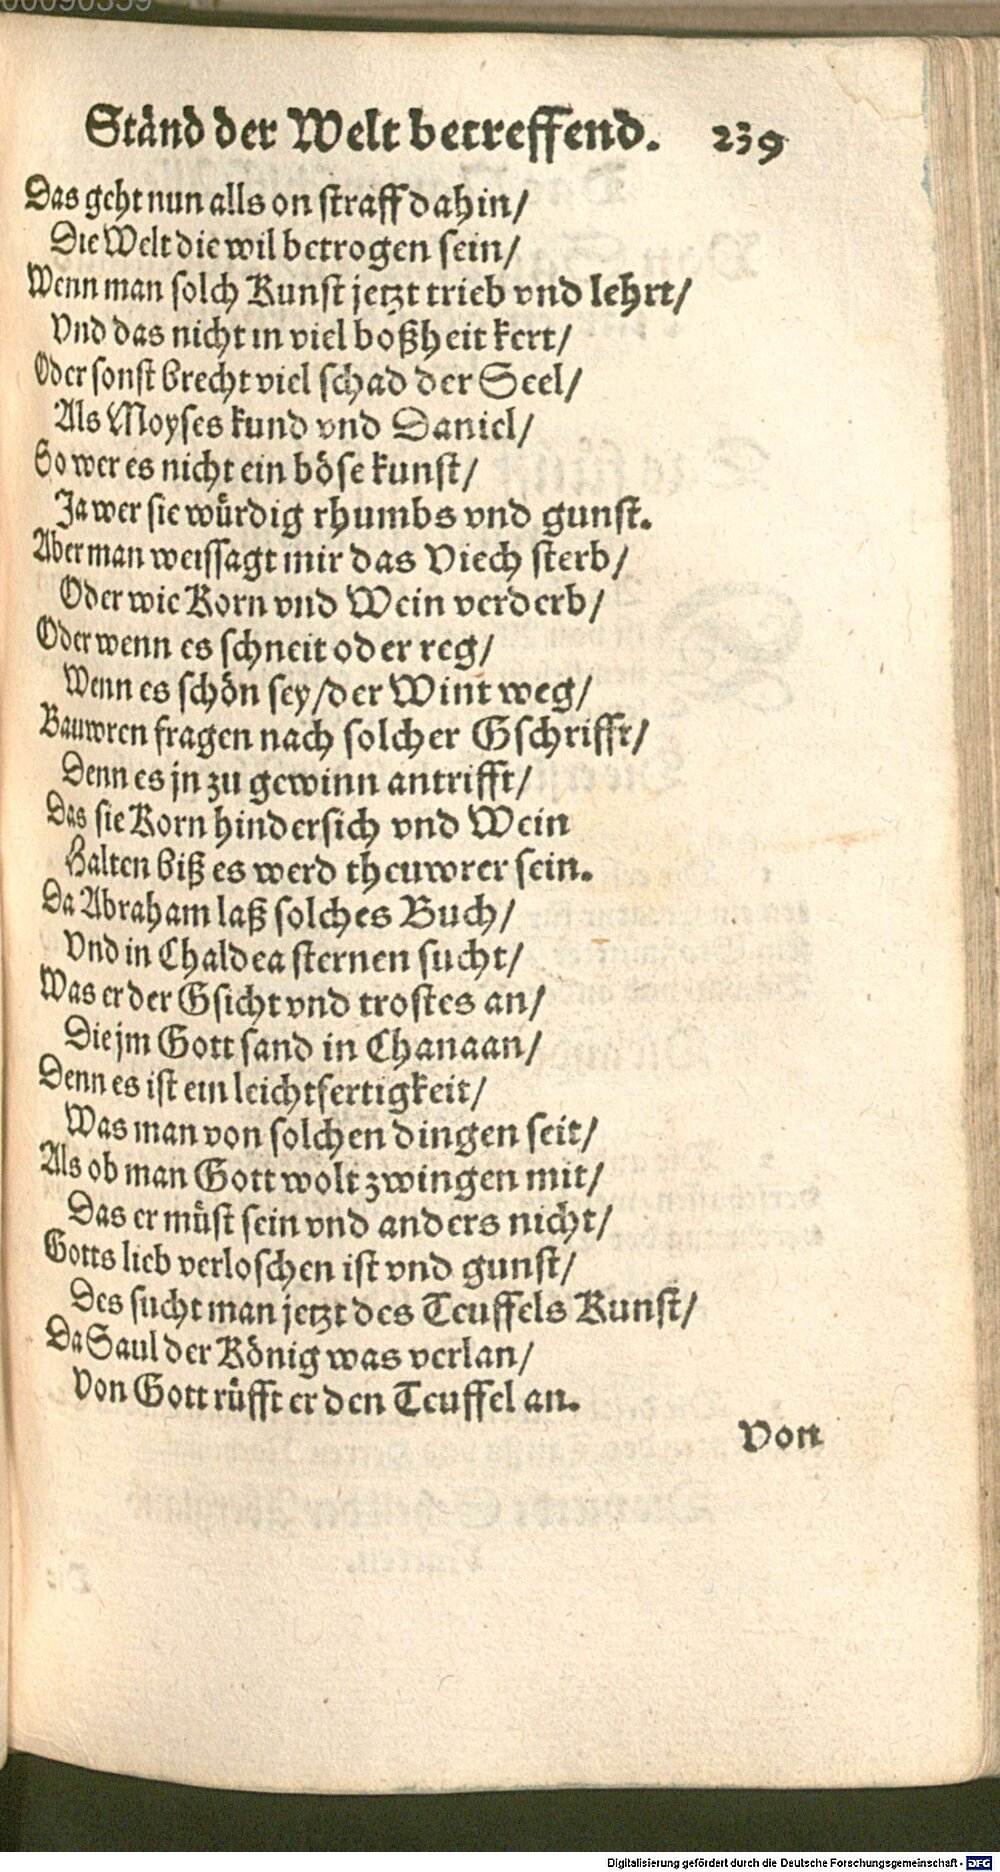 00090359
Ständ der Welt betreffend. 239
Das geht nun alls on straff dahin/
Die Welt die wil betrogen sein/
Wenn man solch Kunst jetzt trieb vnd lehrt/
Vnd das nicht in viel boßheit kert/
Oder sonst brecht viel schad der Seel/
Als Moyses kund vnd Daniel/
So wer es nicht ein böse kunst/
Ja wer sie würdig rhumbs vnd gunst.
Aber man weissagt mir das Viech sterb/
Oder wie Korn vnd Wein verderb/
Oder wenn es schneit oder reg/
Wenn es schön sey/der Wint weg/
Bauwren fragen nach solcher Gschrifft/
Denn es jn zu gewinn antrifft/
Das sie Korn hindersich vnd Wein
Halten biß es werd theuwrer sein.
Da Abraham laß solches Buch/
Vnd in Chaldea sternen sucht/
Was er der Gsicht vnd trostes an/
Die jm Gott sand in Chanaan/
Denn es ist ein leichtfertigkeit/
Was man von solchen dingen seit/
Als ob man Gott wolt zwingen mit/
Das er müst sein vnd anders nicht/
Gotts lieb verloschen ist vnd gunst/
Des sucht man jetzt des Teuffels Kunst/
Da Saul der König was verlan/
Von Gott rüfft er den Teuffel an.
Von
Digitalisierung gefördert durch die Deutsche Forschungsgemeinschaft - DFG